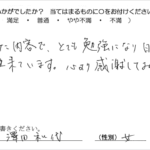 かがでしたか？ 当てはまるものに○をお付けください
満足 ・ 普通 ・ やや不満 ・ 不満 ）
た内容で、とても勉強になり日
来ています。心より感謝してお
書きください。
澤田
（性別） 女